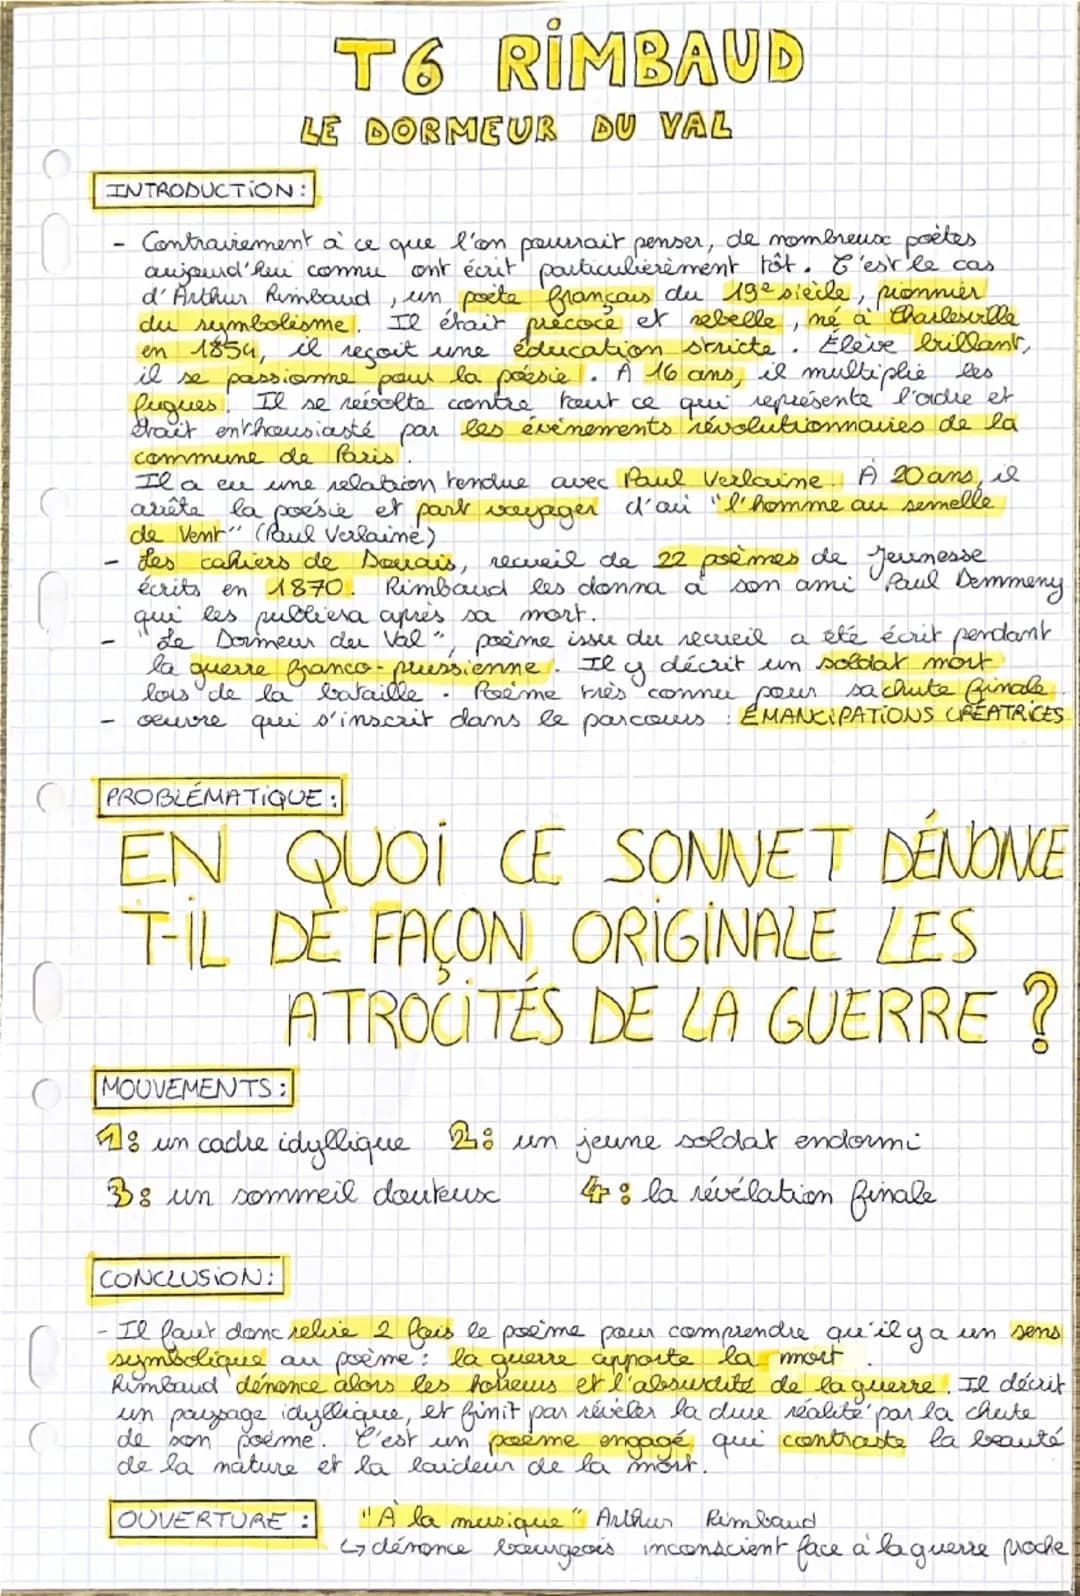 T6 RIMBAUD
LE DORMEUR DU VAL
INTRODUCTION :
- Contrairement à ce que l'on pourrait penser, de nombreux poètes
aujourd'hui connu ont écrit particulièrement tôt. C'est le cas
d'Arthur Rimbaud, un poète français du 19e siècle, pionnier
du symbolisme. Il était précoce et rebelle, né à Charleville
en 1854, il reçoit une éducation stricte. Élève brillant,
il se passionne pour la poésie. À 16 ans, il multiplie les
fugues. Il se révolte contre tout ce qui représente l'ordre et
était enthousiasté par les événements révolutionnaires de la
commune de Paris.
Il a eu une relation tendue avec Paul Verlaine. À 20 ans, il
arrête la poésie et part voyager d'où "l'homme au semelle
de Vent" (Paul Verlaine)
- Les cahiers de Douais, recueil de 22 poèmes de Jeunesse
écrits en 1870. Rimbaud les donna à son ami Paul Demmeny
qui les publiera après sa mort.
- "Le Dormeur du Val", poème issu du recueil a été écrit pendant
la guerre franco-prussienne. Il y décrit un soldat mort
lors de la bataille. Poème très connu pour sa chute finale.
- oeuvre qui s'inscrit dans le parcours : ÉMANCIPATIONS CRÉATRICES
PROBLÉMATIQUE :
EN QUOI CE SONNET DÉNONCE
T-IL DE FAÇON ORIGINALE LES
ATROCITÉS DE LA GUERRE ?
MOUVEMENTS :
1: un cadre idyllique 2: un jeune soldat endormi
3: un sommeil douteux 4: la révélation finale
CONCLUSION :
- Il faut donc relire 2 fois le poème pour comprendre qu'il y a un sens
symbolique au poème : la guerre apporte la mort.
Rimbaud dénonce alors les horreurs et l'absurdité de la guerre. Il décrit
un paysage idyllique, et finit par révéler la dure réalité par la chute
de son poème. C'est un poème engagé, qui contraste la beauté
de la nature et la laideur de la mort.
OUVERTURE : "À la musique" Arthur Rimbaud
↳ dénonce bourgeois inconscient face à la guerre proche